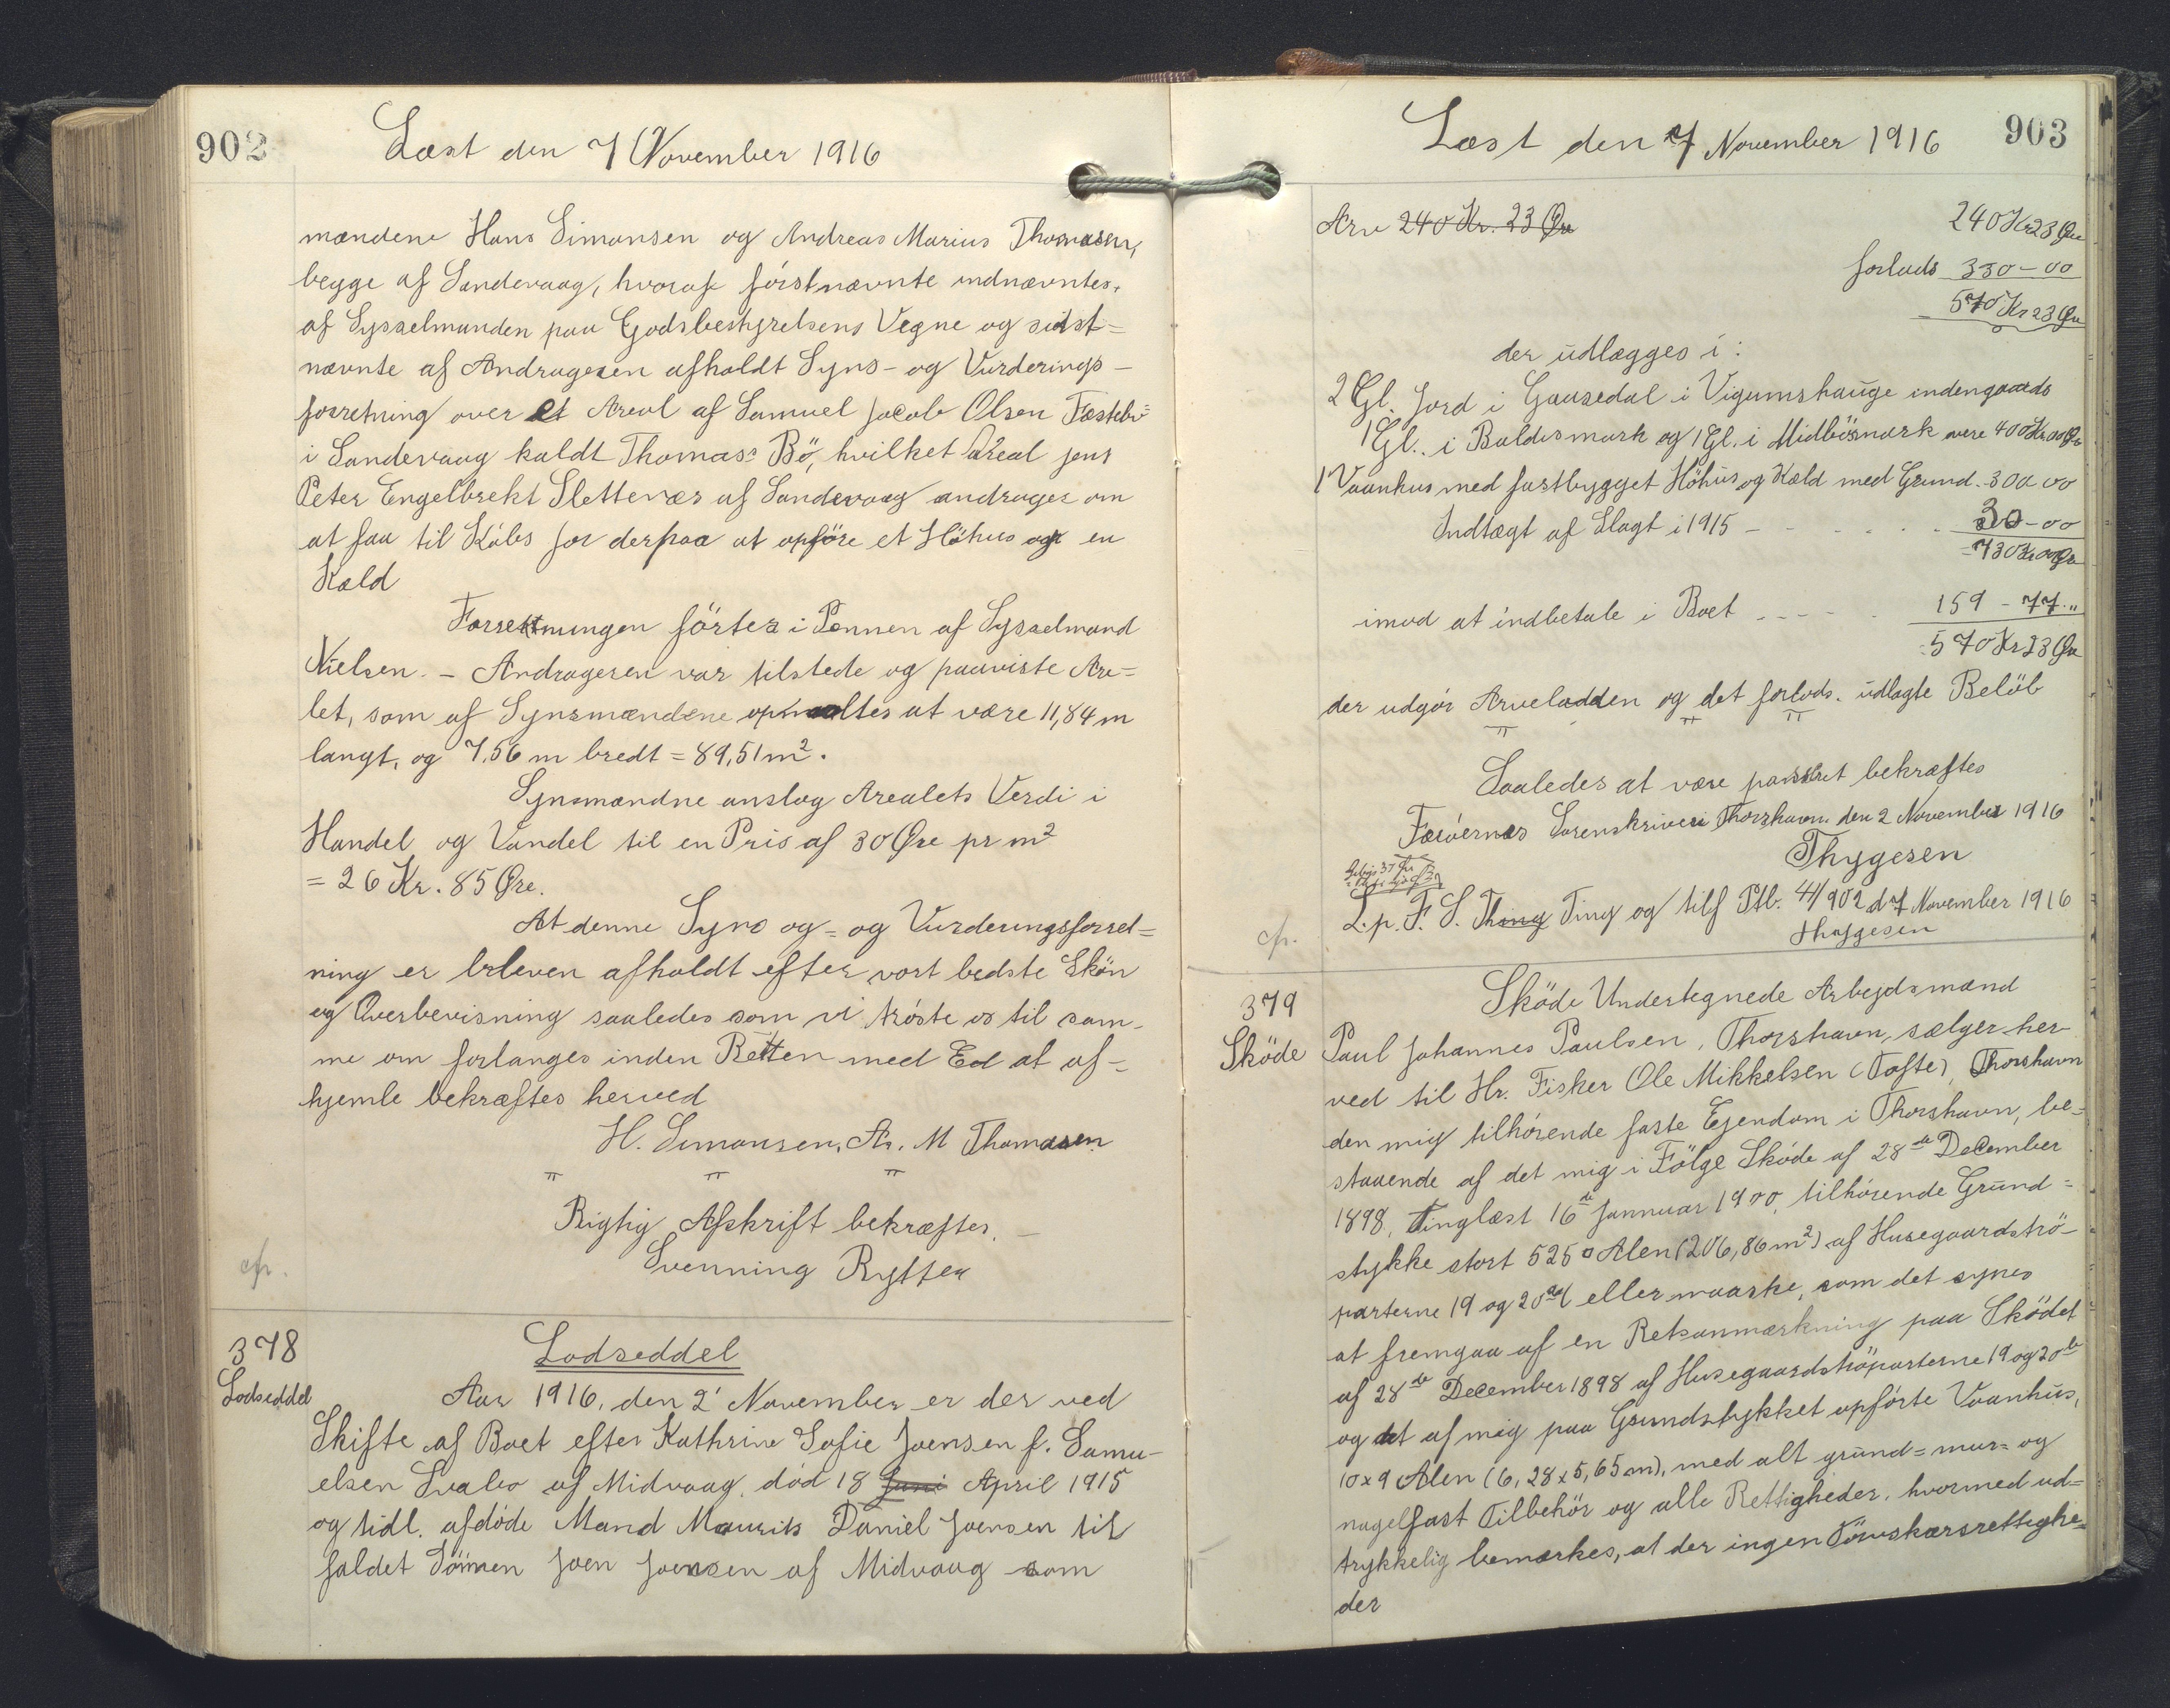 902
Læst den 7 November 1916
mændene Hans Simonsen og Andreas Marius Thomasen,
begge af Sandevaag, hvoraf förstnævnte indnævntes,
af Sysselmanden paa Godsbestyrelsens Vegne og sidst=
nævnte af Andrageren afholdt Syns- og Vurderings-
forretning over et Areal af Samuel Jacob Olsen Fæstebr
i Sandevaag kaldt Thomas: Bö, hvilket Areal Jens
Peter Engelbrekt Slettenes af Sandevaag andrager om
at faa til Köbs for derpaa at opföre et Höhus og en
Kæld
Forretningen förtes i Pennen af Sysselmand
Nielsen. - Andrageren var tilstede og paaviste Are=
let, som af Synsmændene opmaaltes at være 11,84 m
langt, og 7,56 m bredt = 89,51 m².
Synsmændne anslog Arealets Verdi i
Handel og Vandel til en Pris af 30 Øre pr m²
= 26 Kr. 85 Øre.
At denne Syns og= og Vurderingsforret=
ning er bleven afholdt efter vort bedste Skön
og Overbevisning saaledes som vi tröste os til sam-
me om forlanges inden Retten med Ed at af-
hjemle bekræftes herved
H. Simonsen, A. M Thomasen
" " "
Rigtig Afskrift bekræftes. -
Svenning Rytter
cfr.
378
Lodseddel
Lodseddel
Aar 1916, den 2' November er der ved
Skifte af Boet efter Kathrine Sofie Joensen f. Samu-
elsen Svabo af Midvaag, död 18 Juni April 1915
og tidl. afdöde Mand Maurits Daniel Joensen til
faldet Sönnen Joen Joensen af Midvaag som
Læst den 7 November 1916
903
Arv 240 Kr. 23 Øre 240 Kr 23 Øre
forlods 330-00
570 Kr 23 Øre
der udlægges i:
2 Gl. Jord i Gaasedal i Vigumshauge indengaards
1 Gl. i Baldesmark og 1 Gl. i Midbösmark være 400 Kr 00 Øre
1 Vaanhus med fastbygget Höhus og Kæld med Grund. 300 00
Indtægt af Slagt i 1915 - - - - 30-00
= 730 Kr 00 Øre
imod at indbetale i Boet - - - 159 - 77 "
570 Kr 23 Øre
der udgör Arvelodden og det forlods. udlagte Belöb
" " "
Saaledes at være passeret bekræftes
Færöernes Sorenskriveri Thorshavn. den 2 November 1916
Thygesen
L. p. F. S. Thing Ting og tilf Ptb. 41/902 d 7 November 1916
Thygesen
cfr.
379
Sköde
Sköde Undertegnede Arbejdsmand
Paul Johannes Paulsen, Thorshavn, sælger her
ved til Hr. Fisker Ole Mikkelsen (Tofte), Thorshavn
den mig tilhörende faste Ejendom i Thorshavn, be=
staaende af det mig i Fölge Sköde af 28de December
1898, Tinglæst 16de Jannuar 1900, tilhörende Grund=
stykke stort 525 □ Alen (206,86 m²) af Husegaardströ-
parterne 19 og 20 a ( eller maaske, som det synes
at fremgaa af en Retsanmærkning paa Sködet
af 28de December 1898 af Husegaardströparterne 19 og 20 b
og det af mig paa Grundstykket opförte Vaanhus,
10 x 9 Alen (6,28 x 5,65 m), med alt grund= mur= og
nagelfast Tilbehör og alle Rettigheder, hvormed ud=
trykkelig bemærkes, at der ingen Törvskærsrettighe=
der